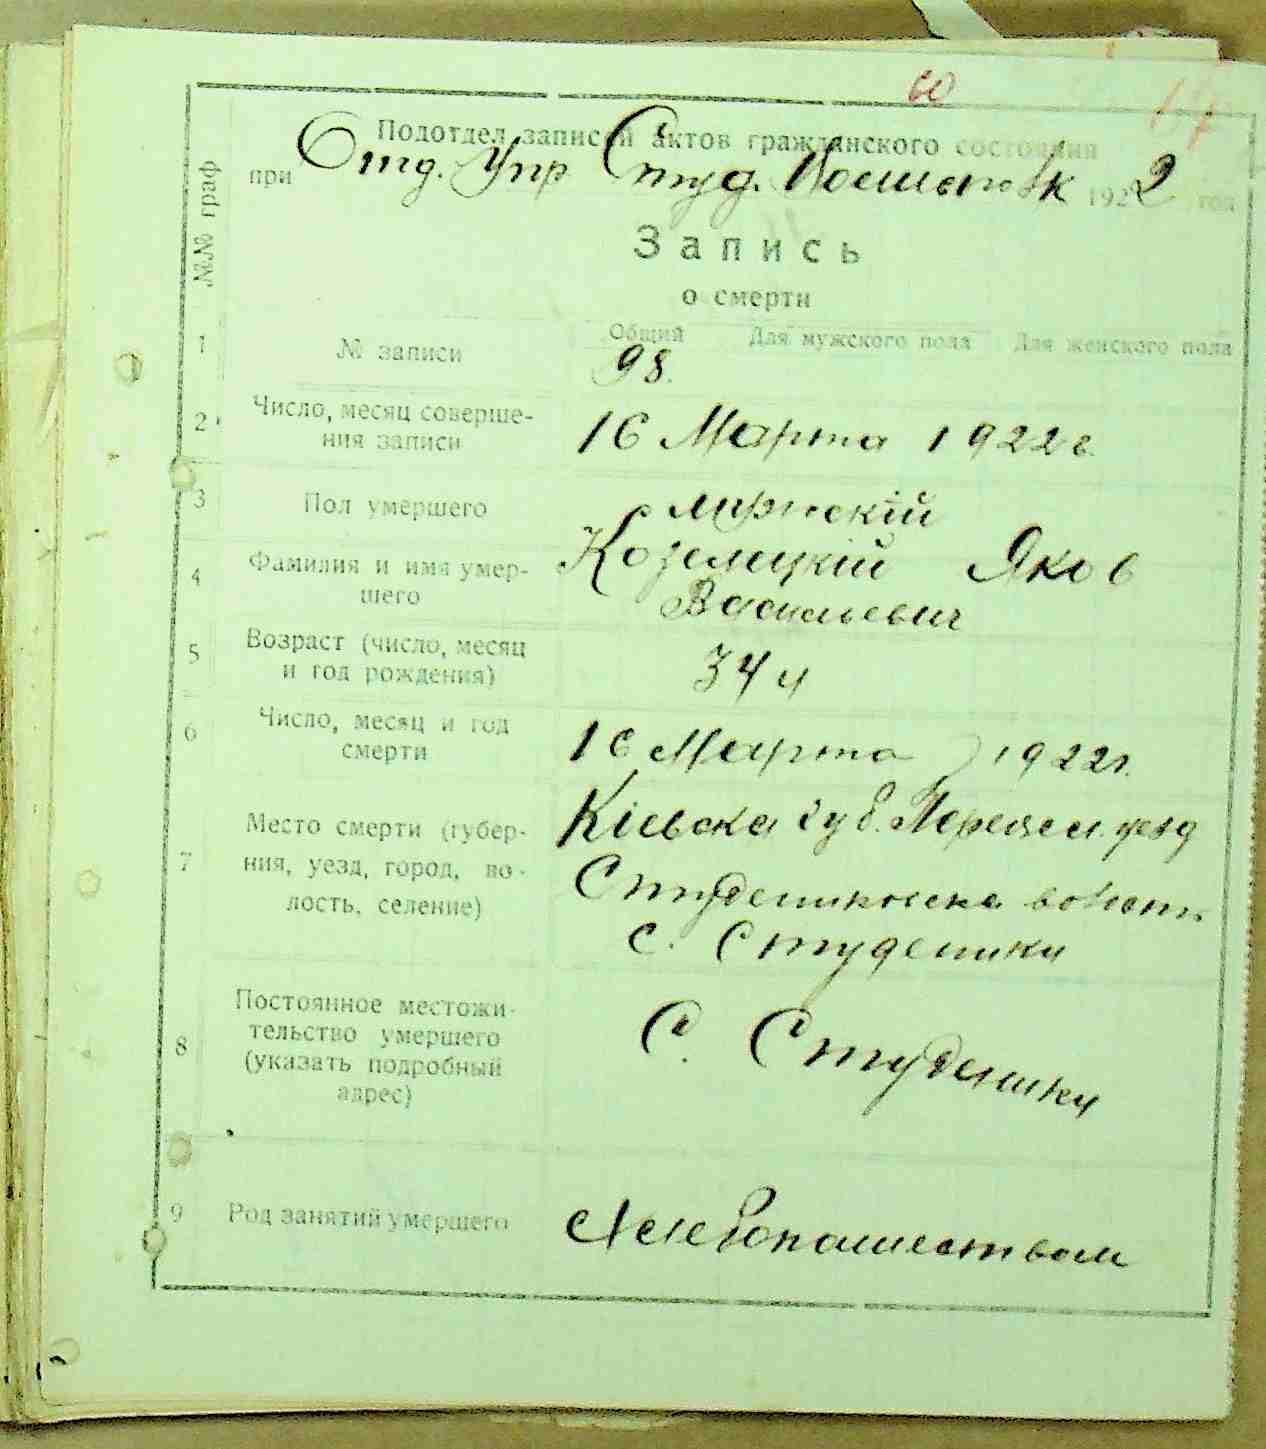 60
Подотдел записей актов гражданского состояния
при Отд. Упр Студ. 1922 год
№№ граф
Запись
о смерти
1 № записи Общий Для мужского пола Для женского пола
98
2 Число, месяц соверше-
ния записи 16 Марта 1922 г.
3 Пол умершего
4 Фамилия и имя умер- Козелецкій Яков
шего Васильевич
5 Возраст (число, месяц
и год рождения) 34 л
6 Число, месяц и год
смерти 16 Марта 1922 г.
7 Место смерти (губер- Кіевска губ. Переясл. уезд
ния, уезд, город, во- Студениковска волость
лость, селение) с. Студеники
8 Постоянное местожи-
тельство умершего С. Студеники
(указать подробный
адрес)
9 Род занятий умершего Хлебопашеством